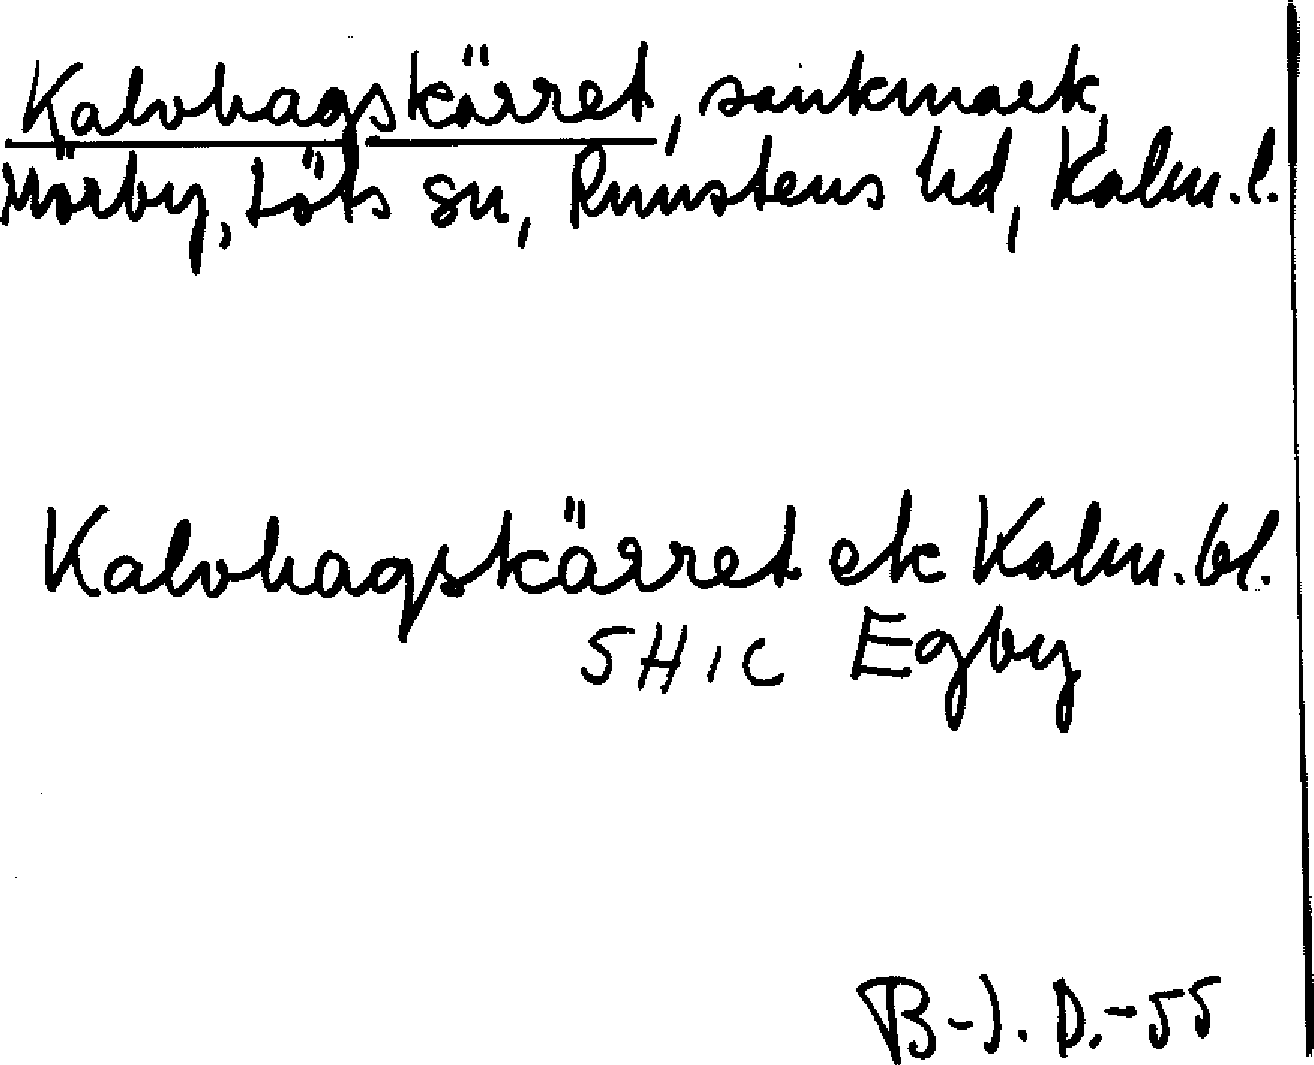 Kalvhagskärret, sankmark,
Mörby, Löts sn, Runstens hd, Kalm. l.
Kalvhagskärret ek Kalm. bl.
5H1C Egby
B-J. D.-55